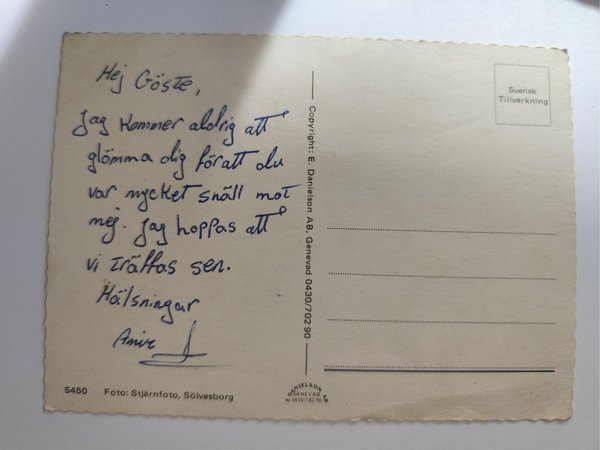 Hej Göste,
Jag kommer aldrig att
glömma dig föratt du
var mycket snäll mot
mej. Jag hoppas att
vi träffas sen.
Hälsningar
5450 Foto: Stjärnfoto, Sölvesborg
Copyright: E. Danielson AB, Genevad 0430/702 90
DANIELSON AB
GENEVAD
0430/702 90
Svensk
Tillverkning